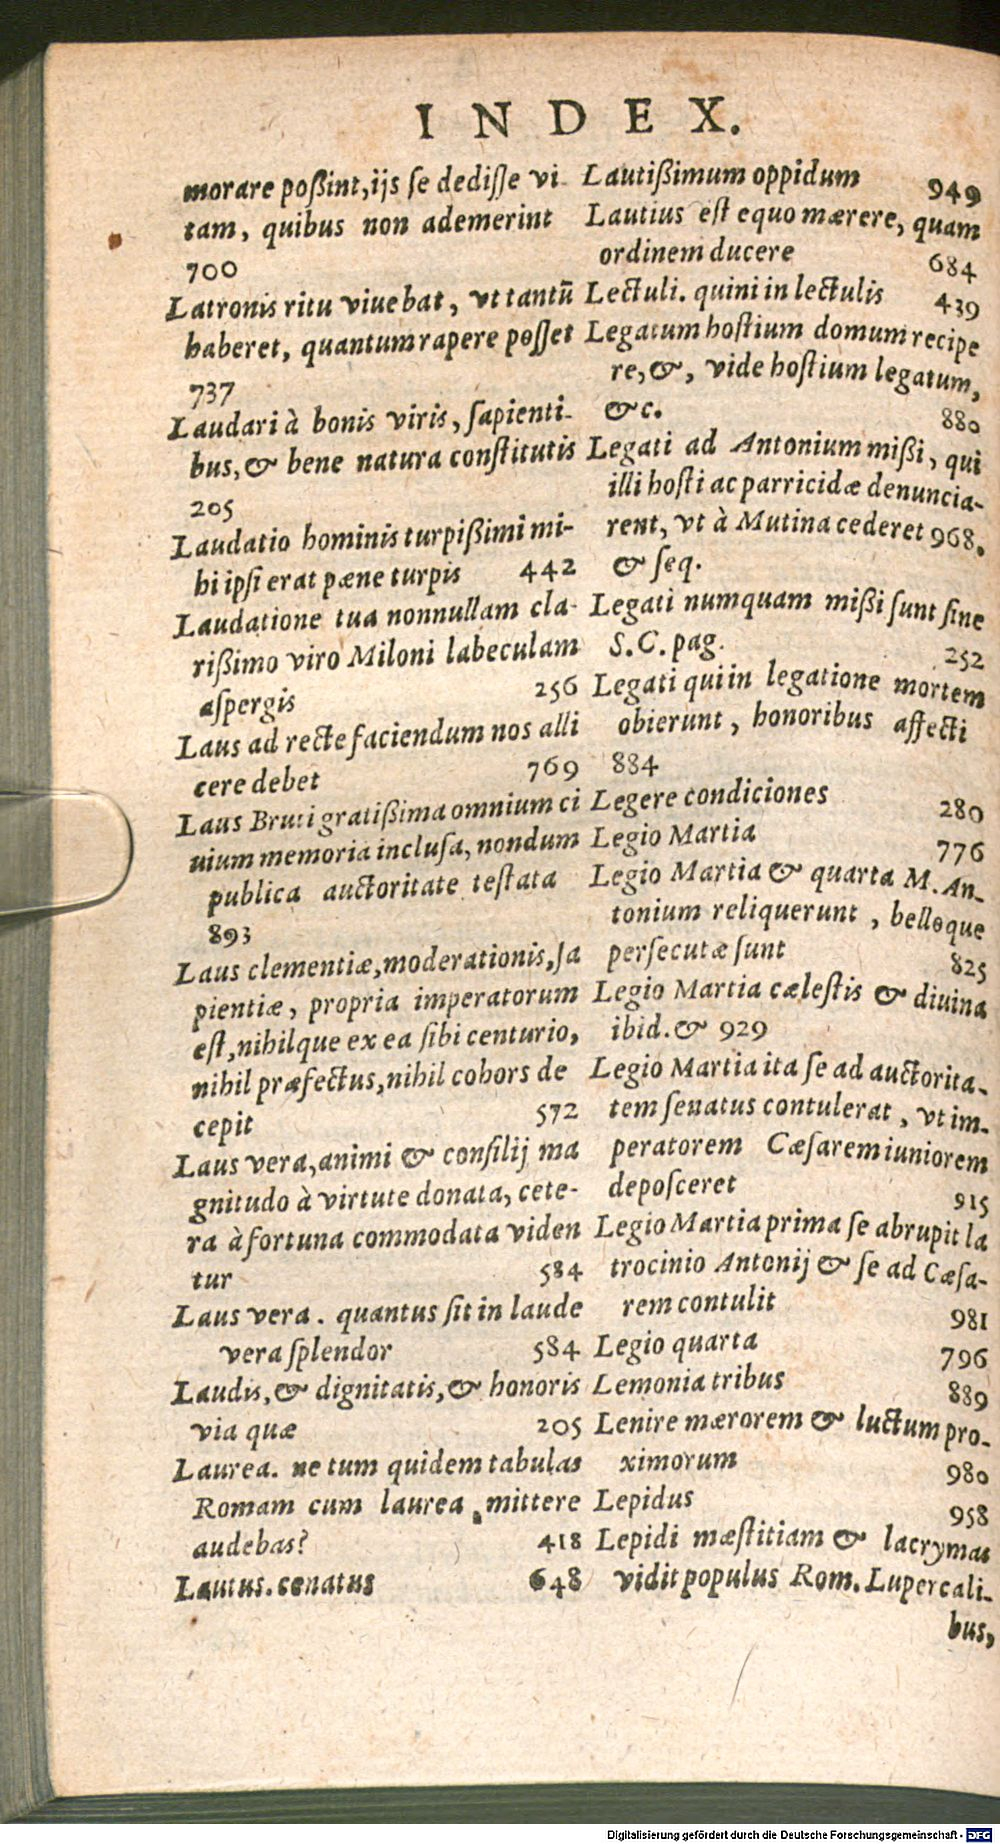 INDEX.
morare poßint, ijs se dedisse vi-
tam, quibus non ademerint
700
Latronis ritu viuebat, vt tantũ
haberet, quantum rapere posset
737
Laudari à bonis viris, sapienti-
bus, & bene natura constitutis
205
Laudatio hominis turpißimi mi-
hi ipsi erat pæne turpis 442
Laudatione tua nonnullam cla-
rißimo viro Miloni labeculam
aspergis 256
Laus ad recte faciendum nos alli
cere debet 769
Laus Bruti gratißima omnium ci
uium memoria inclusa, nondum
publica auctoritate testata
893
Laus clementiæ, moderationis, sa
pientiæ, propria imperatorum
est, nihilque ex ea sibi centurio,
nihil præfectus, nihil cohors de
cepit 572
Laus vera, animi & consilij ma
gnitudo à virtute donata, cete-
ra à fortuna commodata viden
tur 584
Laus vera. quantus sit in laude
vera splendor 584
Laudis, & dignitatis, & honoris
via quæ 205
Laurea. ne tum quidem tabulas
Romam cum laurea mittere
audebas? 418
Lautus. cenatus 648
Lautißimum oppidum 949
Lautius est equo mærere, quam
ordinem ducere 684
Lectuli. quini in lectulis 439
Legatum hostium domum recipe
re, &, vide hostium legatum,
&c. 880
Legati ad Antonium mißi, qui
illi hosti ac parricidæ denuncia-
rent, vt à Mutina cederet 968.
& seq.
Legati numquam mißi sunt sine
S. C. pag. 252
Legati qui in legatione mortem
obierunt, honoribus affecti
884
Legere condiciones 280
Legio Martia 776
Legio Martia & quarta M. An-
tonium reliquerunt, belloque
persecutæ sunt 825
Legio Martia cælestis & diuina
ibid. & 929
Legio Martia ita se ad auctorita-
tem senatus contulerat, vt im-
peratorem Cæsarem iuniorem
deposceret 915
Legio Martia prima se abrupit la
trocinio Antonij & se ad Cæsa-
rem contulit 981
Legio quarta 796
Lemonia tribus 889
Lenire mærorem & luctum pro-
ximorum 980
Lepidus 958
Lepidi mæstitiam & lacrymas
vidit populus Rom. Lupercali-
bus,
Digitalisierung gefördert durch die Deutsche Forschungsgemeinschaft - DFG